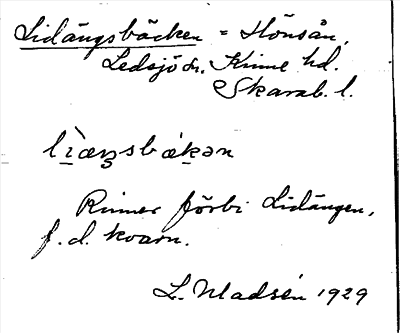 Lidängsbäcken = Hönsån,
Ledsjö sn. Kinne hd.
Skarab. l.
lìæŋsbækən
Rinner förbi Lidängen,
f. d. kvarn.
L. Madsén 1929